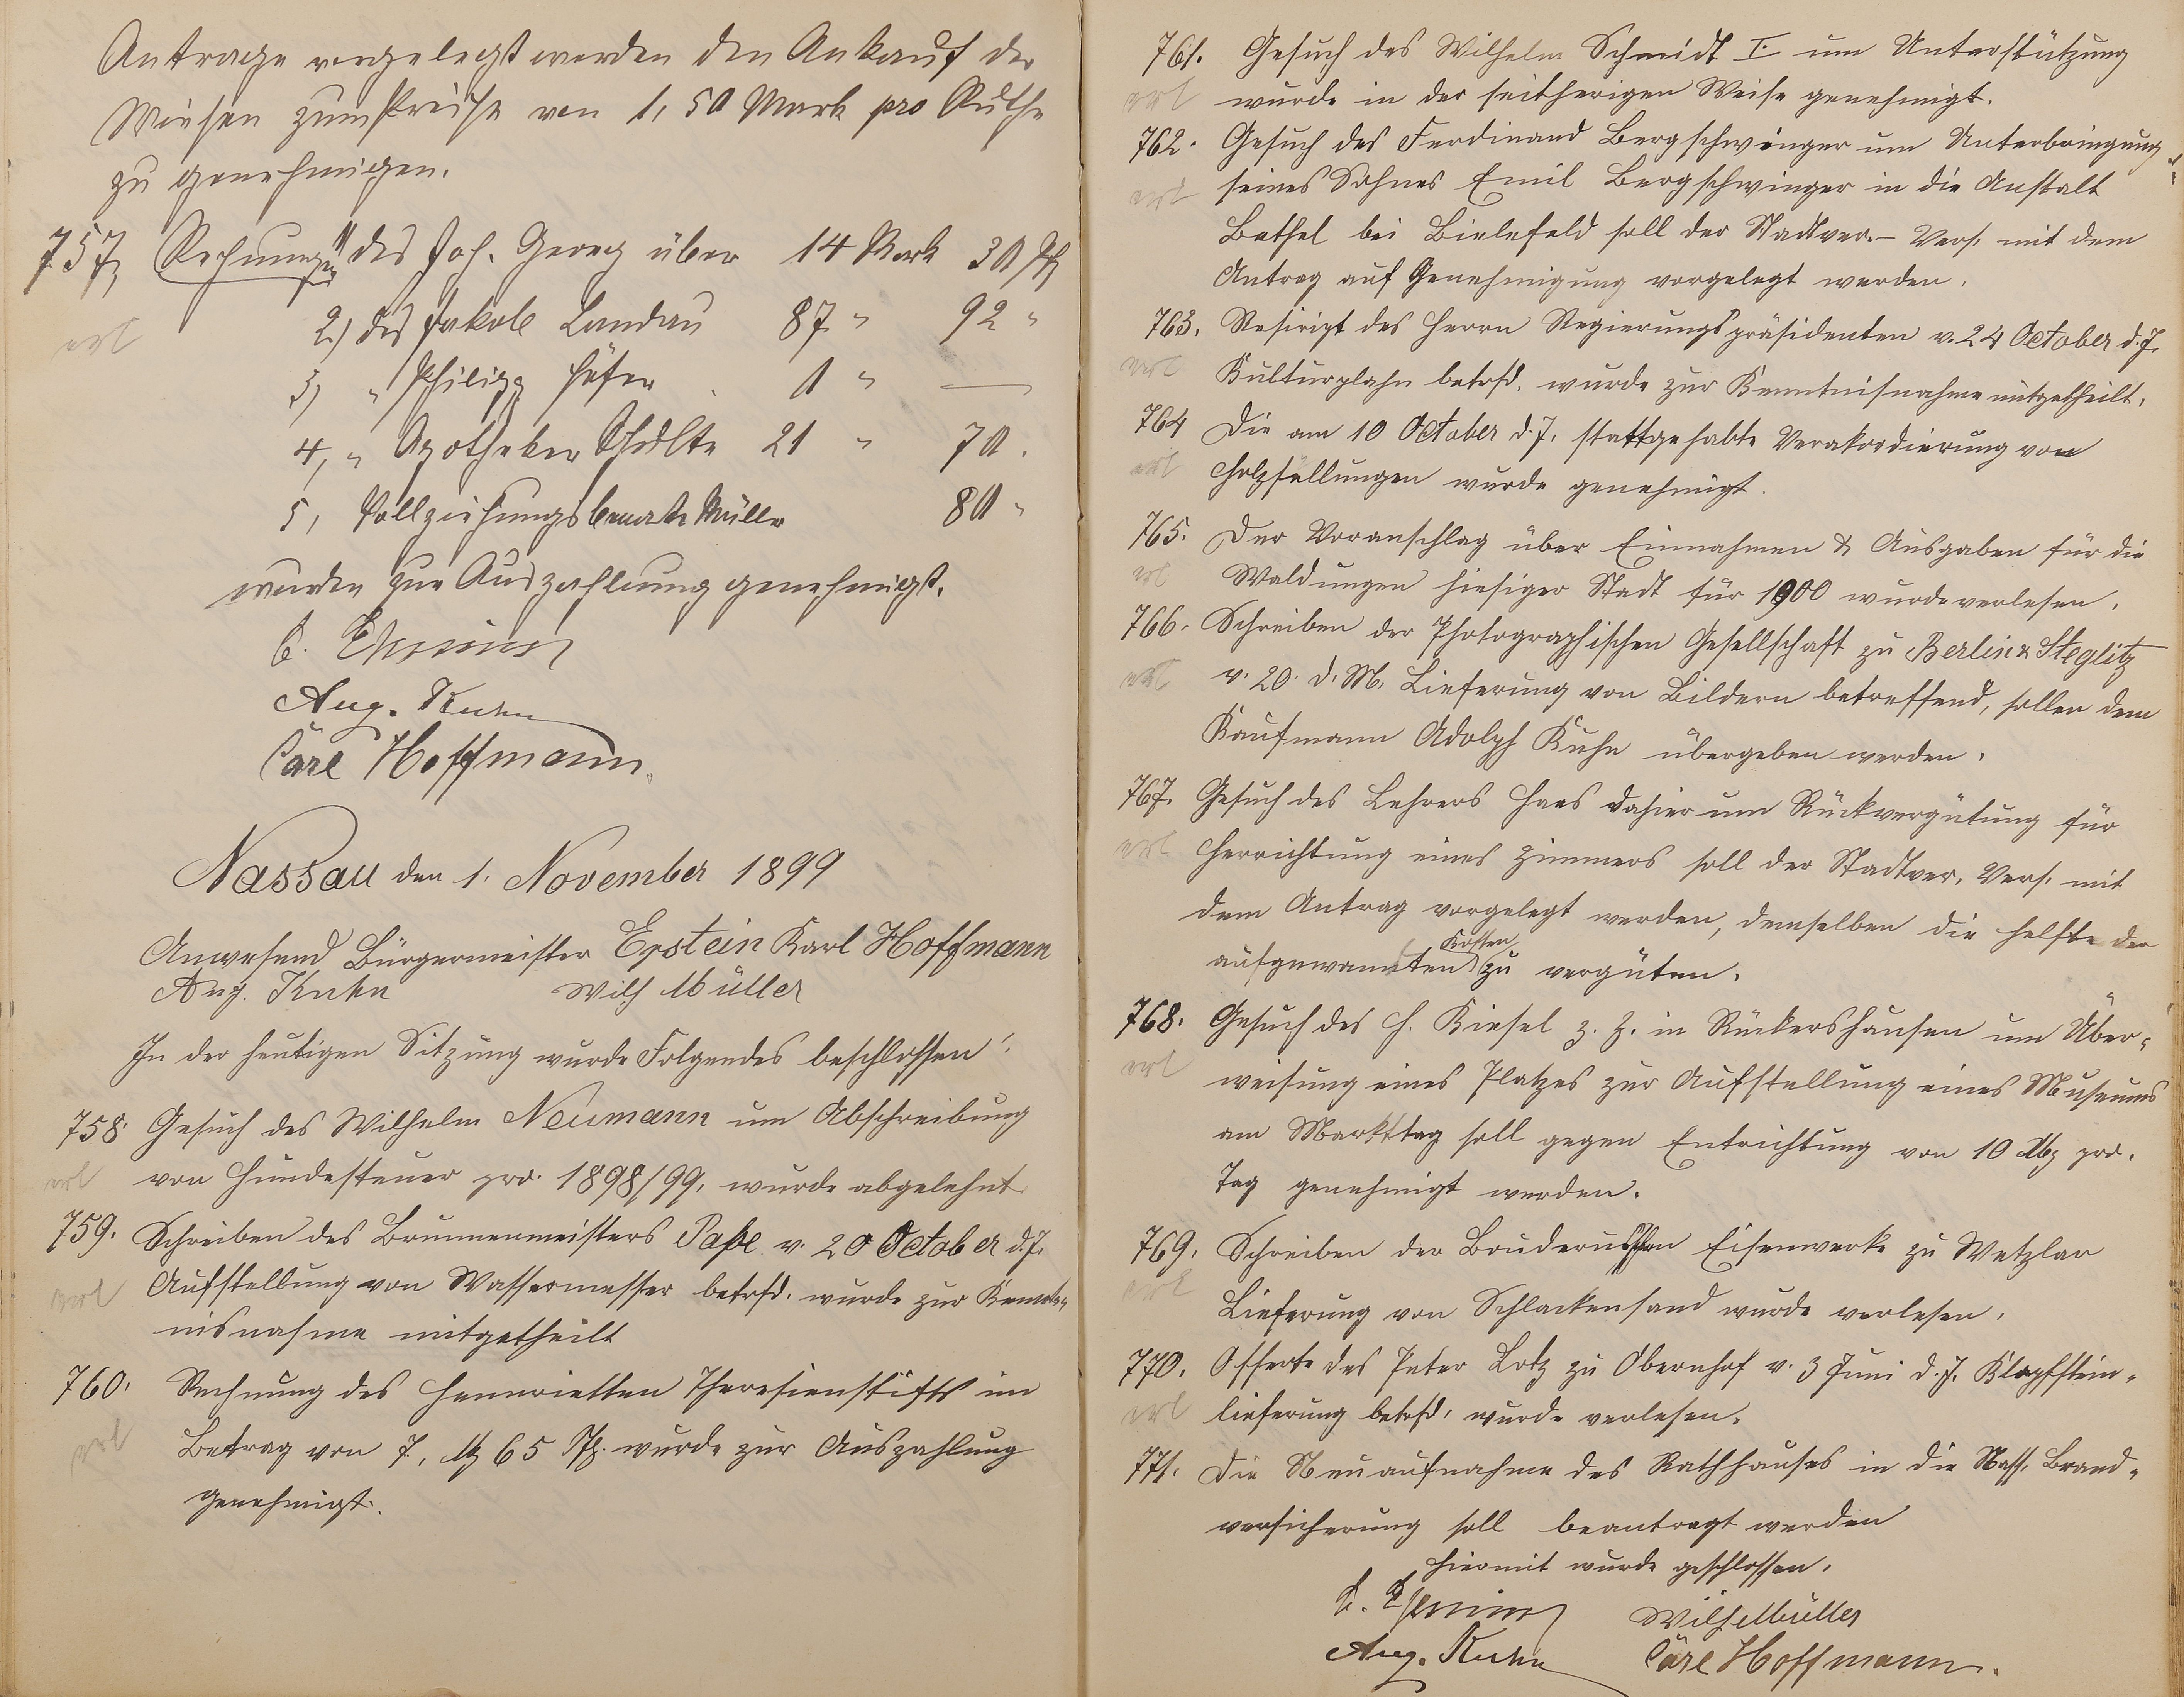 Antrage vorgelegt werden den Ankauf der
Wiesen zum Preise von 1,50 Mark pro Ruthe
zu genehmigen.
757, Rechnung 1) des Joh. Georg über 14 Mark 30 Pf
erl
2.) des Jakob Landau 87 " 92 "
3) " Philipp Höfer 1 " —
4, " Apotheker Schulte 21 " 70 .
5, Vollziehungsbeamte Müller 80 "
wurden zur Auszahlung genehmigt.
Aug. Kuhn
Carl Hoffmann.
Nassau den 1. November 1899
Anwesend Bürgermeister Epstein Karl Hoffmann
Aug. Kuhn Wilh Müller
In der heutigen Sitzung wurde Folgendes beschlossen:
758. Gesuch des Wilhelm Neumann um Abschreibung
erl von Hundesteuer pro. 1898/99, wurde abgelehnt
759. Schreiben des Brunnenmeisters Pape v. 20 October d.J.
erl Aufstellung von Wassermesser betrfd. wurde zur Kennt-
nisnahme mitgetheilt
760. Rechnung des Hennrietten Theresienstifts im
erl Betrag von 7, M 65 Pf. wurde zur Auszahlung
genehmigt.
761. Gesuch des Wilhelm Schmidt I. um Unterstützung
erl wurde in der seitherigen Weise genehmigt.
762. Gesuch des Ferdinand Bergschwinger um Unterbringung
erl seines Sohnes Emil Bergschwinger in die Anstalt
Bethel bei Bielefeld soll der Stadtver.- Vers. mit dem
Antrag auf Genehmigung vorgelegt werden.
763. Reskript des Herrn Regierungspräsidenten v. 24 October d.J.
erl Kulturplahn betrfd. wurde zur Kenntnisnahme mitgetheilt.
764 Die am 10 October d.J. stattgehabte Verakordierung von
erl Holzfällungen wurde genehmigt.
765. Der Voranschlag über Einnahmen & Ausgaben für die
erl Waldungen hiesiger Stadt für 1900 wurde verlesen.
766. Schreiben der Photographischen Gesellschaft zu Berlin & Steglitz
erl v. 20. d. M. Lieferung von Bildern betreffend, sollen dem
Kaufmann Adolph Kuhn übergeben werden.
767. Gesuch des Lehrers Haas dahier um Rückvergütung für
erl Herrichtung eines Zimmers soll der Stadtver. Vers. mit
dem Antrag vorgelegt werden, demselben die Helfte der
aufgewannten Kosten zu vergüten.
768. Gesuch des H. Kiesel z. Z. in Rückershausen um Über-
erl weisung eines Platzes zur Aufstellung eines Museums
am Markttag soll gegen Entrichtung von 10 M pro.
Tag genehmigt werden.
769. Schreiben der Buderusschen Eisenwerke zu Wetzlar
erl Lieferung von Schlackensand wurde verlesen.
770. Offerte des Peter Lotz zu Obernhof v. 3 Juni d.J. Klopfstein-
erl lieferung betrfd. wurde verlesen.
771. Die Neuaufnahme des Rathhauses in die Nass. Brand-
versicherung soll beantragt werden
Hiermit wurde geschlossen.
Wilh Müller
Aug. Kuhn Carl Hoffmann.